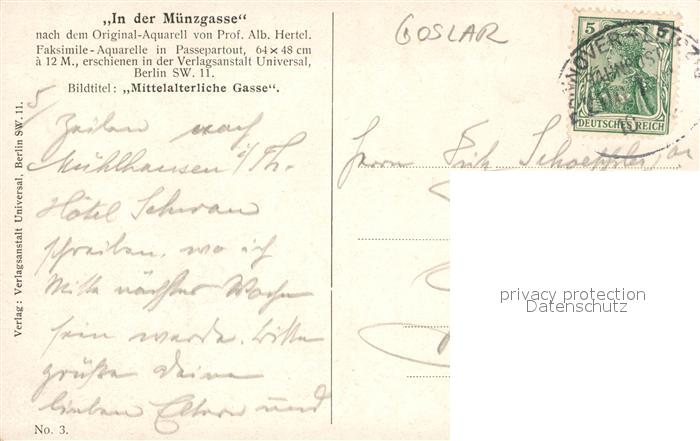 „In der Münzgasse“
nach dem Original-Aquarell von Prof. Alb. Hertel.
Faksimile-Aquarelle in Passepartout, 64 × 48 cm
à 12 M., erschienen in der Verlagsanstalt Universal,
Berlin SW. 11.
Bildtitel: „Mittelalterliche Gasse“.
GOSLAR
5
DEUTSCHES REICH
Verlag: Verlagsanstalt Universal, Berlin SW. 11.
Zeilen nach
Mühlhausen i/Th.
Hôtel Schwan
schreiben, wo ich
Mitte nächster Woche
sein werde. Bitte
grüße Deine
lieben Eltern und
Herrn
No. 3.
privacy protection
Datenschutz